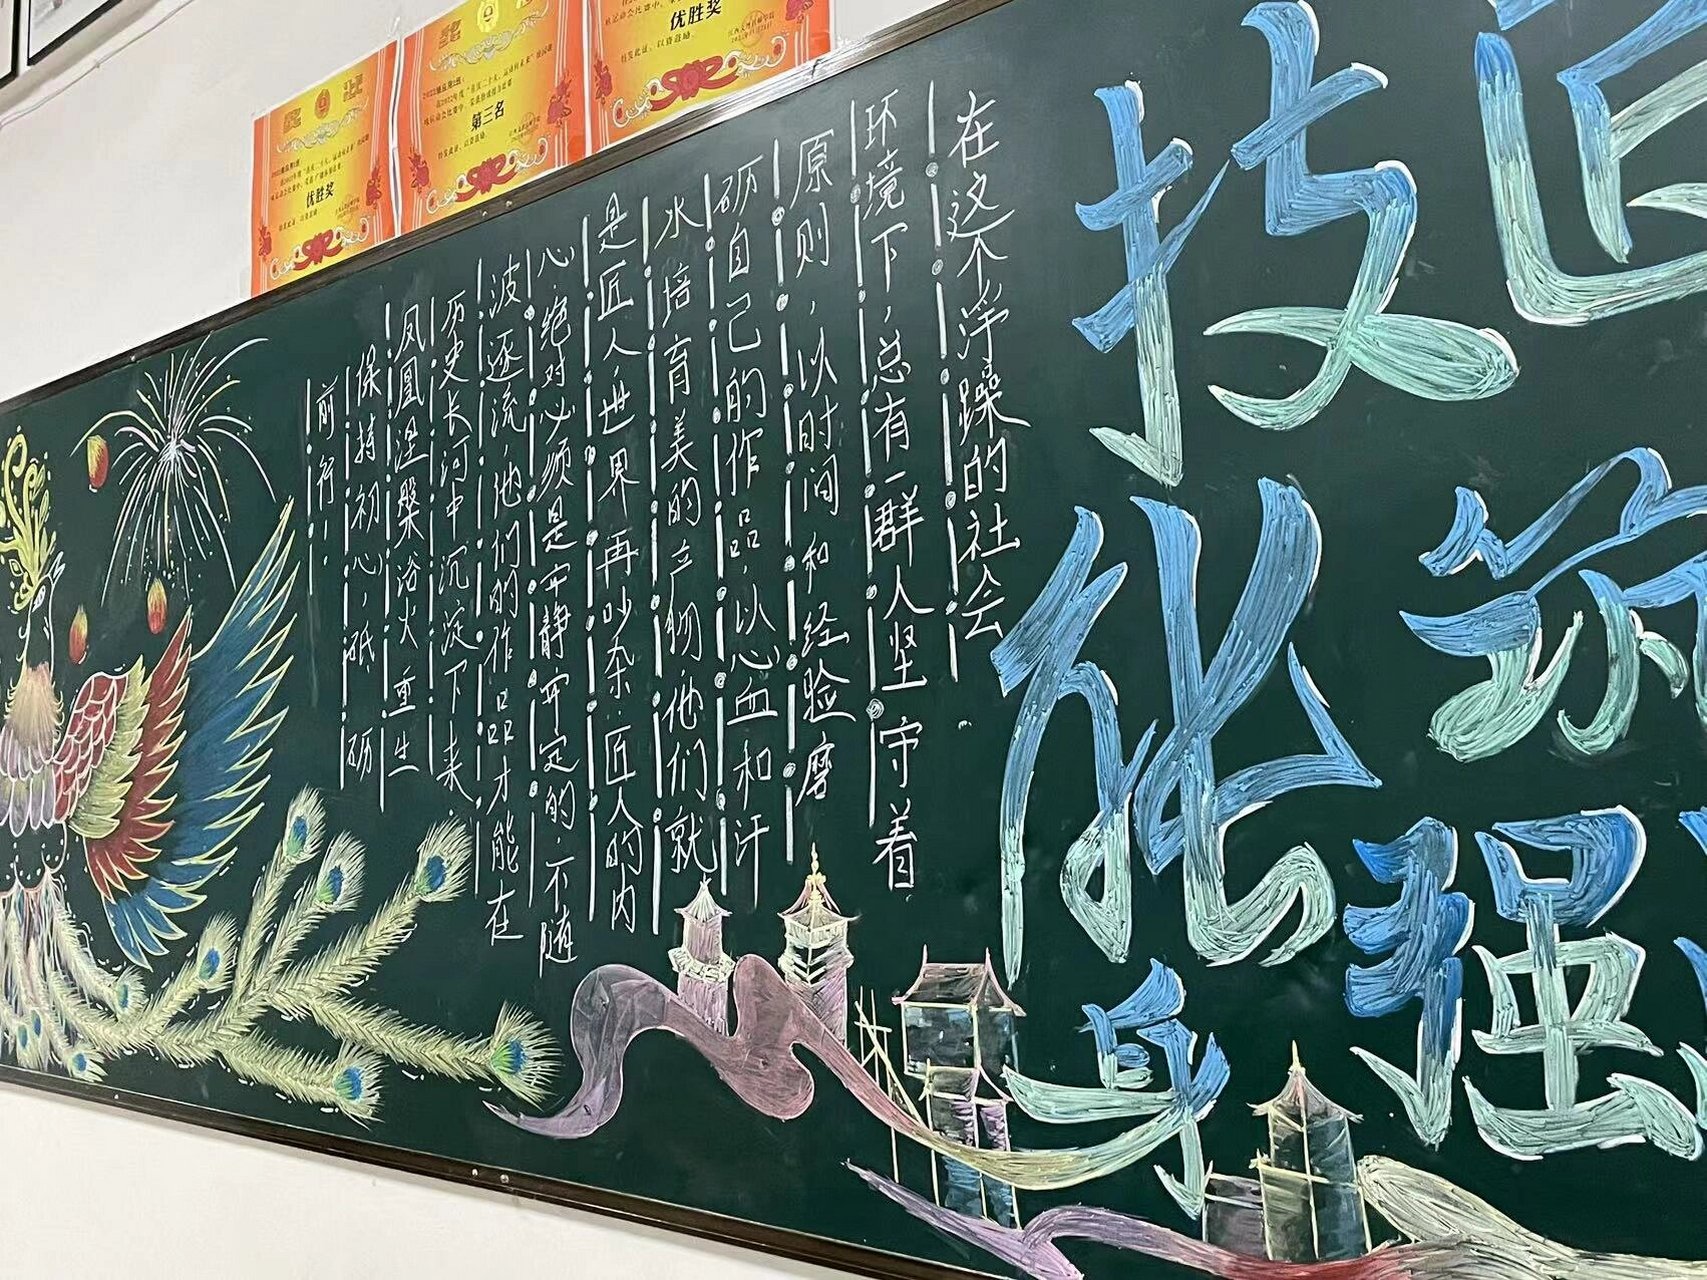 优胜奖
第三名
优胜奖
技
能
强
在这个浮躁的社会
环境下，总有一群人坚守着
原则，以时间和经验磨
砺自己的作品，以心血和汗
水培育美的产物，他们就
是匠人，世界再吵杂，匠人的内
心，绝对必须是安静安定的，不随
波逐流，他们的作品才能在
历史长河中沉淀下来.
凤凰涅槃浴火重生
保持初心，砥砺
前行！